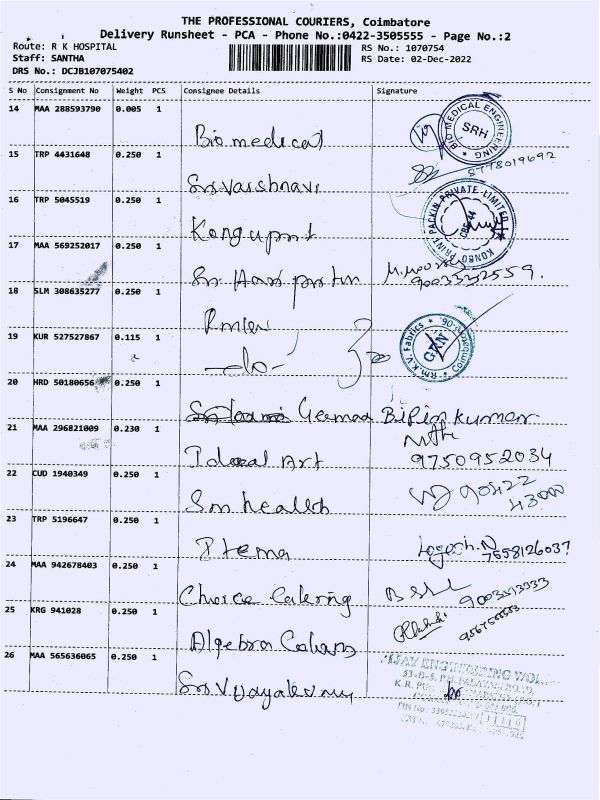 THE PROFESSIONAL COURIERS, Coimbatore
Delivery Runsheet - PCA - Phone No.:0422-3505555 - Page No.:2
Route: R K HOSPITAL RS No.: 1070754
Staff: SANTHA RS Date: 02-Dec-2022
DRS No.: DCJB107075402
S No Consignment No Weight PCS Consignee Details Signature
14 MAA 288593790 0.005 1
Bio medical
BIO MEDICAL ENGINEERING SRH
15 TRP 4431648 0.250 1
8778019692
Sri Vaishnavi
16 TRP 5045519 0.250 1
PRINT PACKIN PRIVATE LIMITED
17 MAA 569252017 0.250 1
Sri Hari
9003332559.
18 SLM 308635277 0.250 1
19 KUR 527527867 0.115 1
Rm.K.V. Fabrics GKN
-do-
20 HRD 50180656 0.250 1
Bipin kumar
21 MAA 296821009 0.230 1
Ideal Art
9750952034
22 CUD 1940349 0.250 1
90422
43000
Sm health
23 TRP 5196647 0.250 1
Logesh.N
7658126037
24 MAA 942678403 0.250 1
Choice Catering
25 KRG 941028 0.250 1
Algebra
26 MAA 565636065 0.250 1
VIJAY ENGINEERING